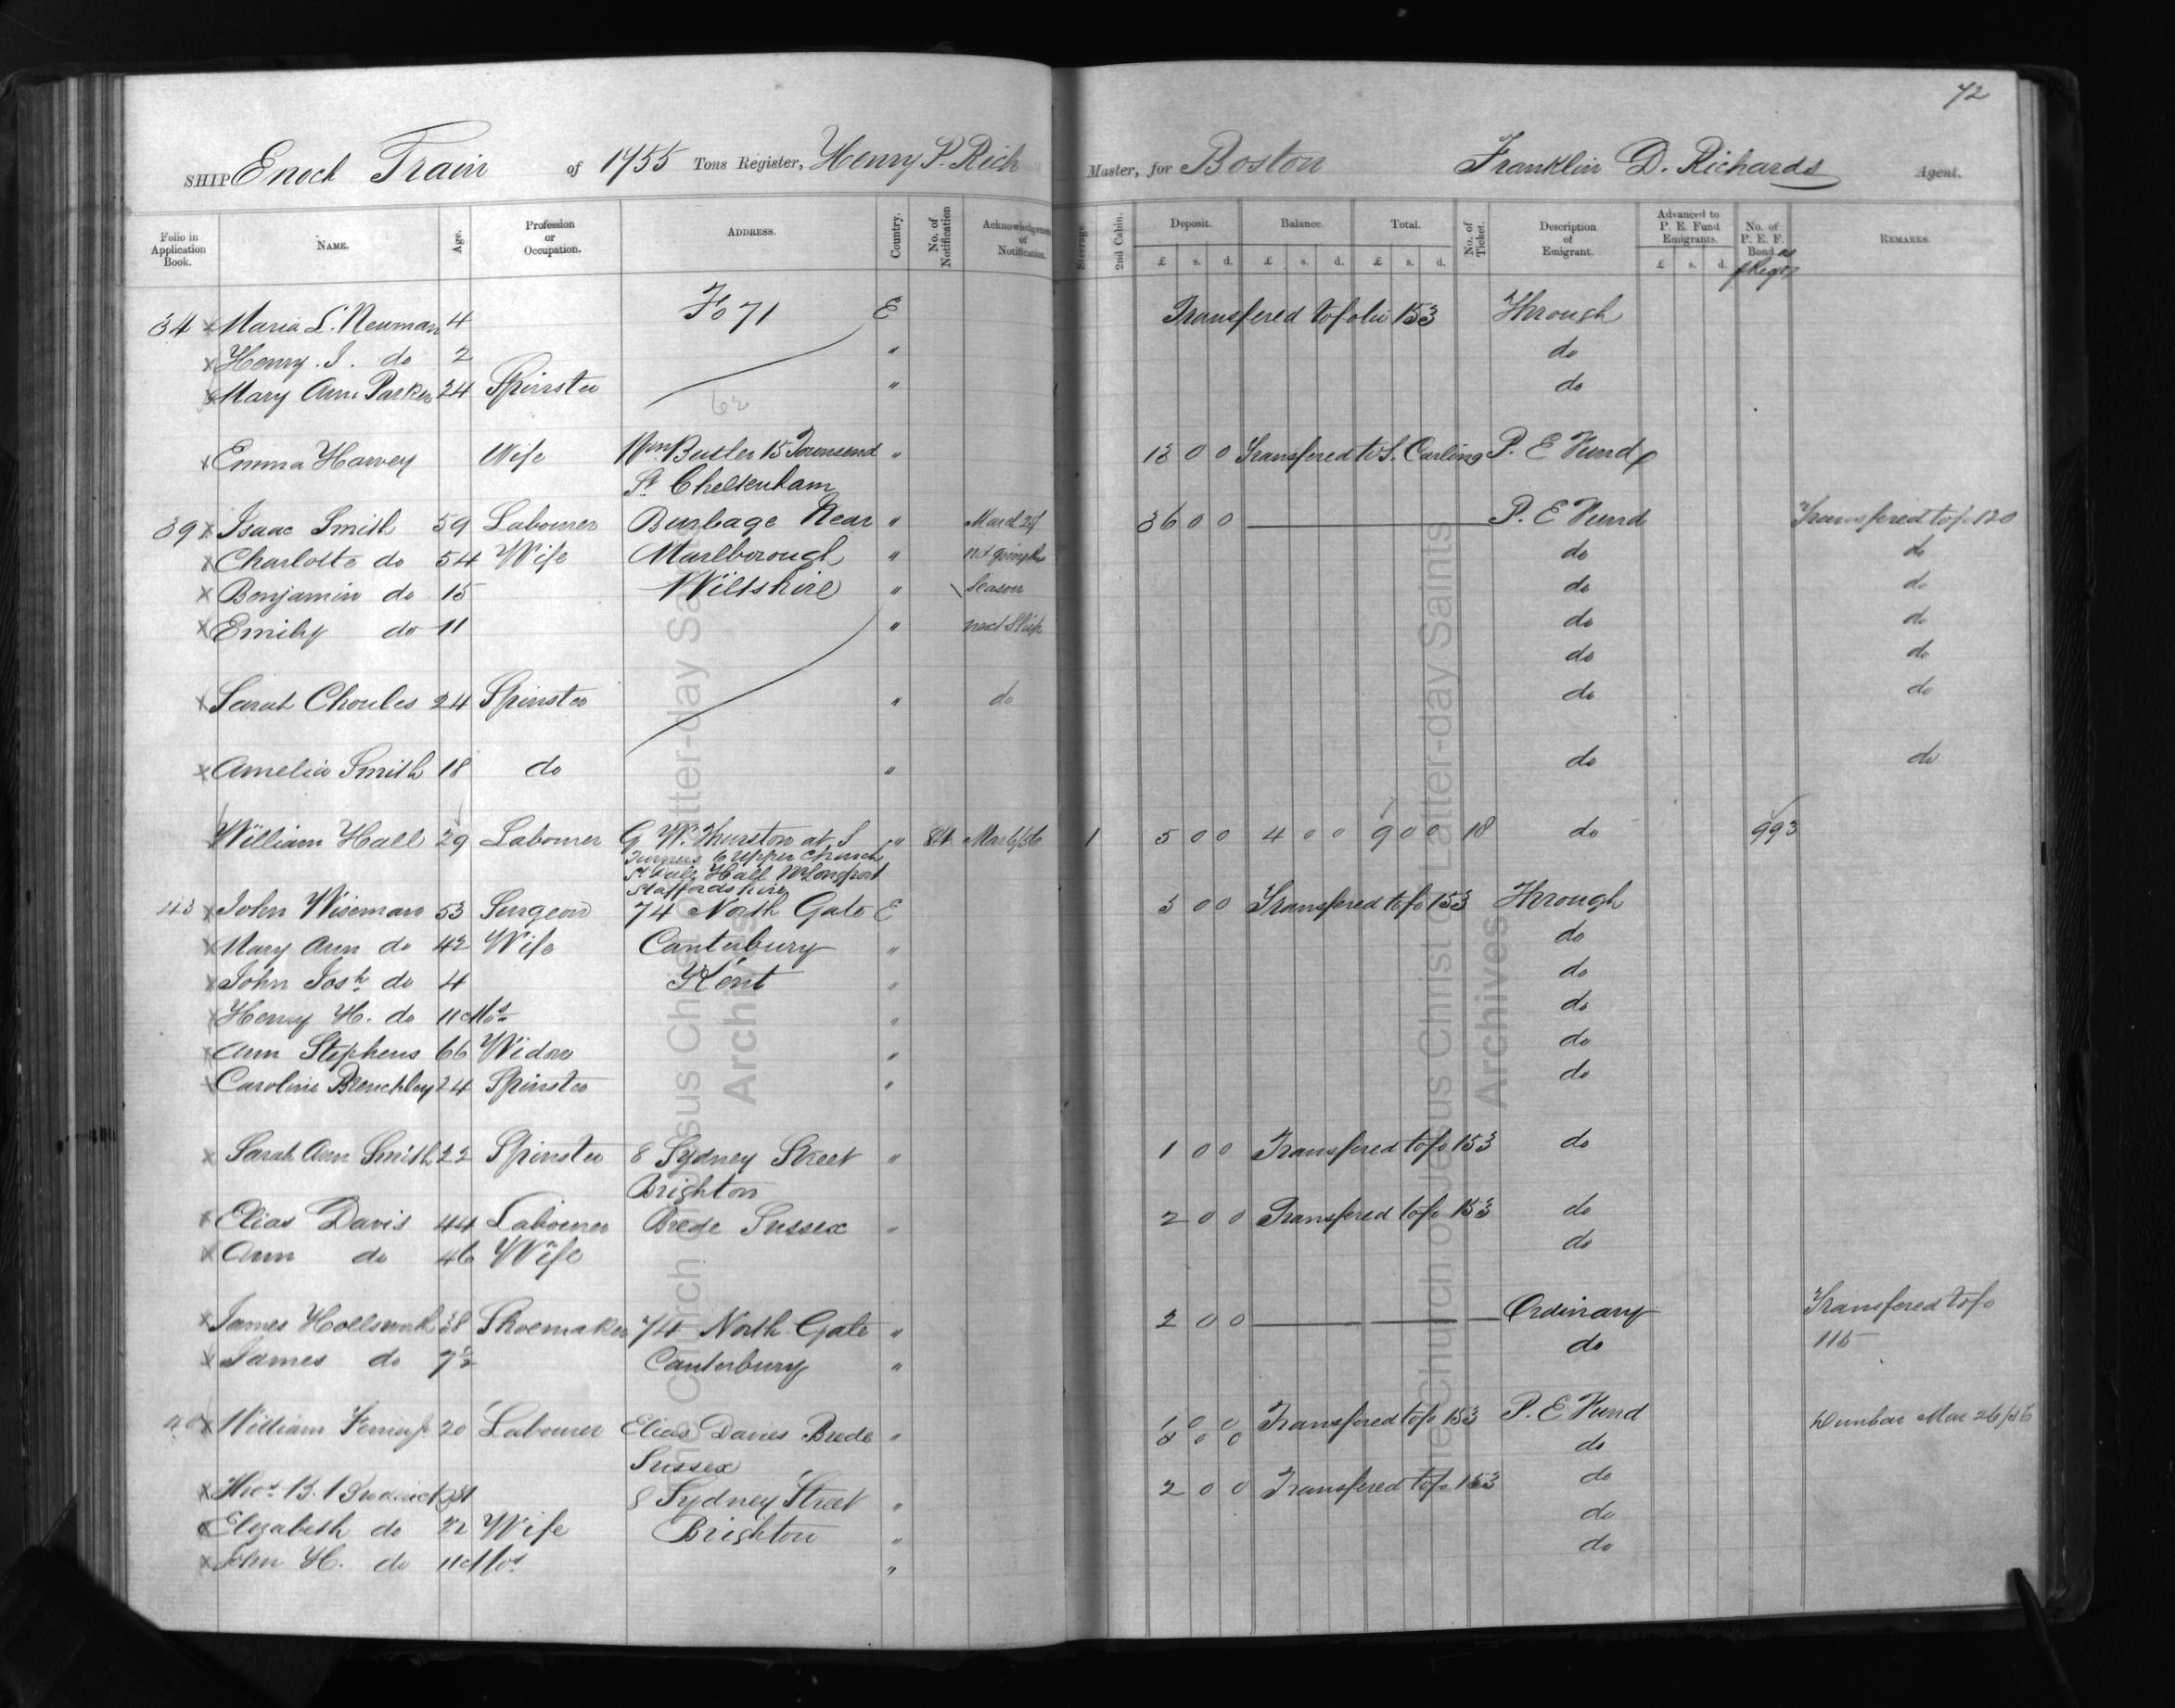 72
SHIP Enoch Train of 1455 Tons Register, Henry P. Rich Master, for Boston Franklin D. Richards Agent.
Folio in Application Book. NAME. Age. Profession or Occupation. ADDRESS. Country. No. of Notification Acknowledgement of Notification. Steerage. 2nd Cabin. Deposit. Balance. Total. No. of Ticket. Description of Emigrant. Advanced to P. E. Fund Emigrants. No. of P. E. F. Bond REMARKS.
£ s. d. £ s. d. £ s. d. £ s. d.
34 x Maria L. Newman 4 Fo 71 E Transfered to folio 153 Through
x Henry J. do 2 " do
x Mary Ann Parker 24 Spinster " do
62
x Emma Harvey Wife Wm Butler 15 Townsend " 13 0 0 Transfered to S. Carling P. E Fund
St Cheltenham
39 x Isaac Smith 59 Labourer Burbage Near " March 24 36 0 0 P. E Fund Transfered to fo 120
x Charlotte do 54 Wife Marlborough " not going this do do
x Benjamin do 15 Wiltshire " Season do do
x Emily do 11 " next Ship do do
do do
x Sarah Choules 24 Spinster " do do do
x Amelia Smith 18 do " do do
William Hall 29 Labourer G. W. Thurston at S " 84 Mar 6/56 1 5 0 0 4 0 0 9 0 0 18 do 993
Turners 6 Upper Church
St Hall Nr Longport
Staffordshire
43 x John Wiseman 53 Surgeon 74 North Gate E 5 0 0 Transfered to fo 153 Through
x Mary Ann do 42 Wife Canterbury " do
x John Josh do 4 Kent " do
x Henry H. do 11 Mos " do
x Ann Stephens 66 Widow " do
x Caroline Brenchley 24 Spinster " do
x Sarah Ann Smith 22 Spinster 8 Sydney Street " 1 0 0 Transfered to fo 153 do
Brighton
x Elias Davis 44 Labourer Brede Sussex " 2 0 0 Transfered to fo 153 do
x Ann do 46 Wife do
x James 38 Shoemaker 74 North Gate " 2 0 0 Ordinary Transfered to fo
x James do Canterbury " do 115
x William 20 Labourer Elias Davies Brede " Transfered to fo 153 P. E Fund Dunbar Mar 26/56
Sussex do
x Thos B. 8 Sydney Street " 2 0 0 Transfered to fo 153 do
x Elizabeth do 22 Wife Brighton " do
x John H. do 11 Mos " do